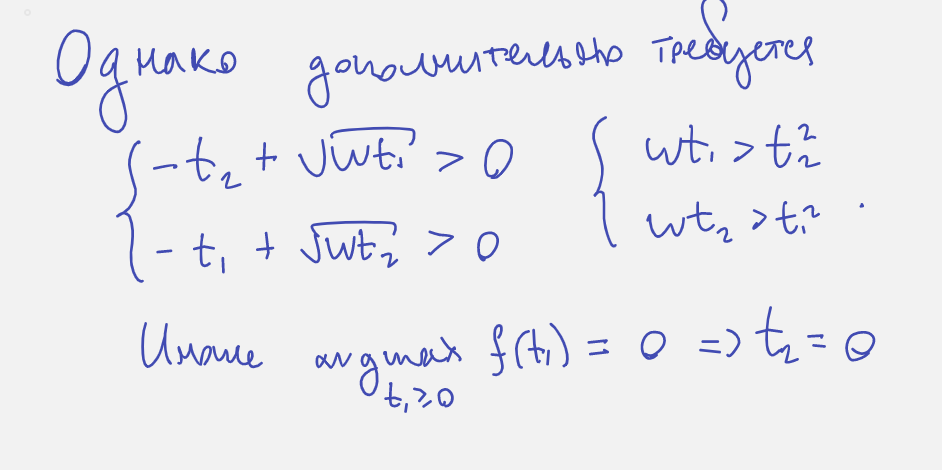 Однако дополнительно требуется
{ -t₂ + √(wt₁) > 0 { wt₁ > t₂²
{ -t₁ + √(wt₂) > 0 { wt₂ > t₁² .
Иначе argmax f(t₁) = 0 => t₂ = 0
t₁ ≥ 0